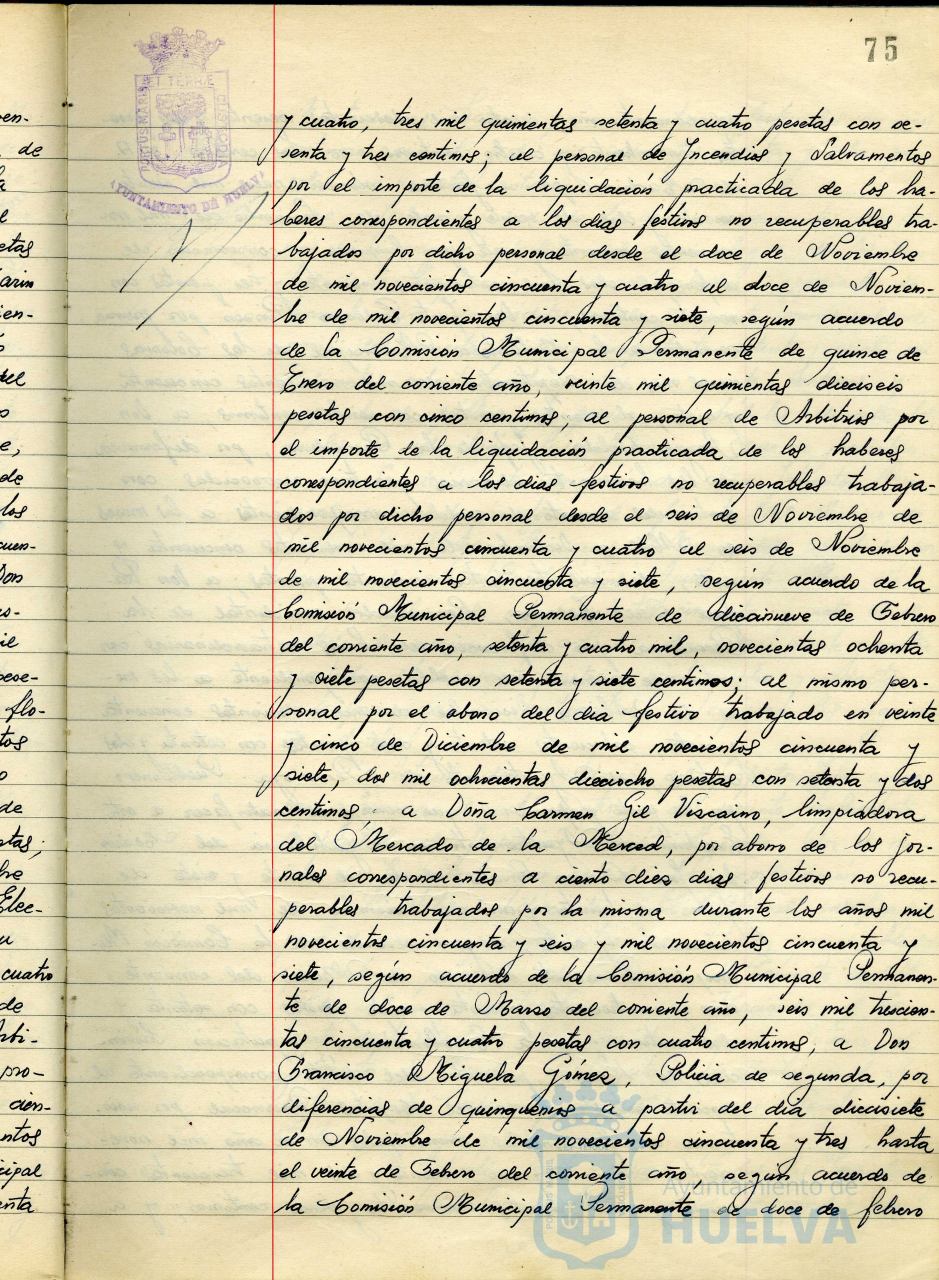 75
PORTUS MARIS ET TERRÆ CUSTODIA
AYUNTAMIENTO DE HUELVA
y cuatro, tres mil quinientas setenta y cuatro pesetas con se-
senta y tres centimos; al personal de Incendios y Salvamentos
por el importe de la liquidación practicada de los ha-
beres correspondientes a los dias festivos no recuperables tra-
bajados por dicho personal desde el doce de Noviembre
de mil novecientos cincuenta y cuatro al doce de Noviem-
bre de mil novecientos cincuenta y siete, según acuerdo
de la Comisión Municipal Permanente de quince de
Enero del corriente año, veinte mil quinientas dieciseis
pesetas con cinco centimos; al personal de Arbitrios por
el importe de la liquidación practicada de los haberes
correspondientes a los dias festivos no recuperables trabaja-
dos por dicho personal desde el seis de Noviembre de
mil novecientos cincuenta y cuatro al seis de Noviembre
de mil novecientos cincuenta y siete, según acuerdo de la
Comisión Municipal Permanente de diecinueve de Febrero
del corriente año, setenta y cuatro mil, novecientas ochenta
y siete pesetas con setenta y siete centimos; al mismo per-
sonal por el abono del dia festivo trabajado en veinte
y cinco de Diciembre de mil novecientos cincuenta y
siete, dos mil ochocientas dieciocho pesetas con setenta y dos
centimos; a Doña Carmen Gil Viscaino, limpiadora
del Mercado de la Merced, por abono de los jor-
nales correspondientes a ciento diez dias festivos no recu-
perables trabajados por la misma durante los años mil
novecientos cincuenta y seis y mil novecientos cincuenta y
siete, según acuerdo de la Comisión Municipal Permanen-
te de doce de Marzo del corriente año, seis mil trescien-
tas cincuenta y cuatro pesetas con cuatro centimos; a Don
Francisco Miguela Gómez, Policia de segunda, por
diferencias de quinquenios a partir del dia diecisiete
de Noviembre de mil novecientos cincuenta y tres hasta
el veinte de Febrero del corriente año, según acuerdo de
la Comisión Municipal Permanente de doce de febrero
Ayuntamiento de
HUELVA